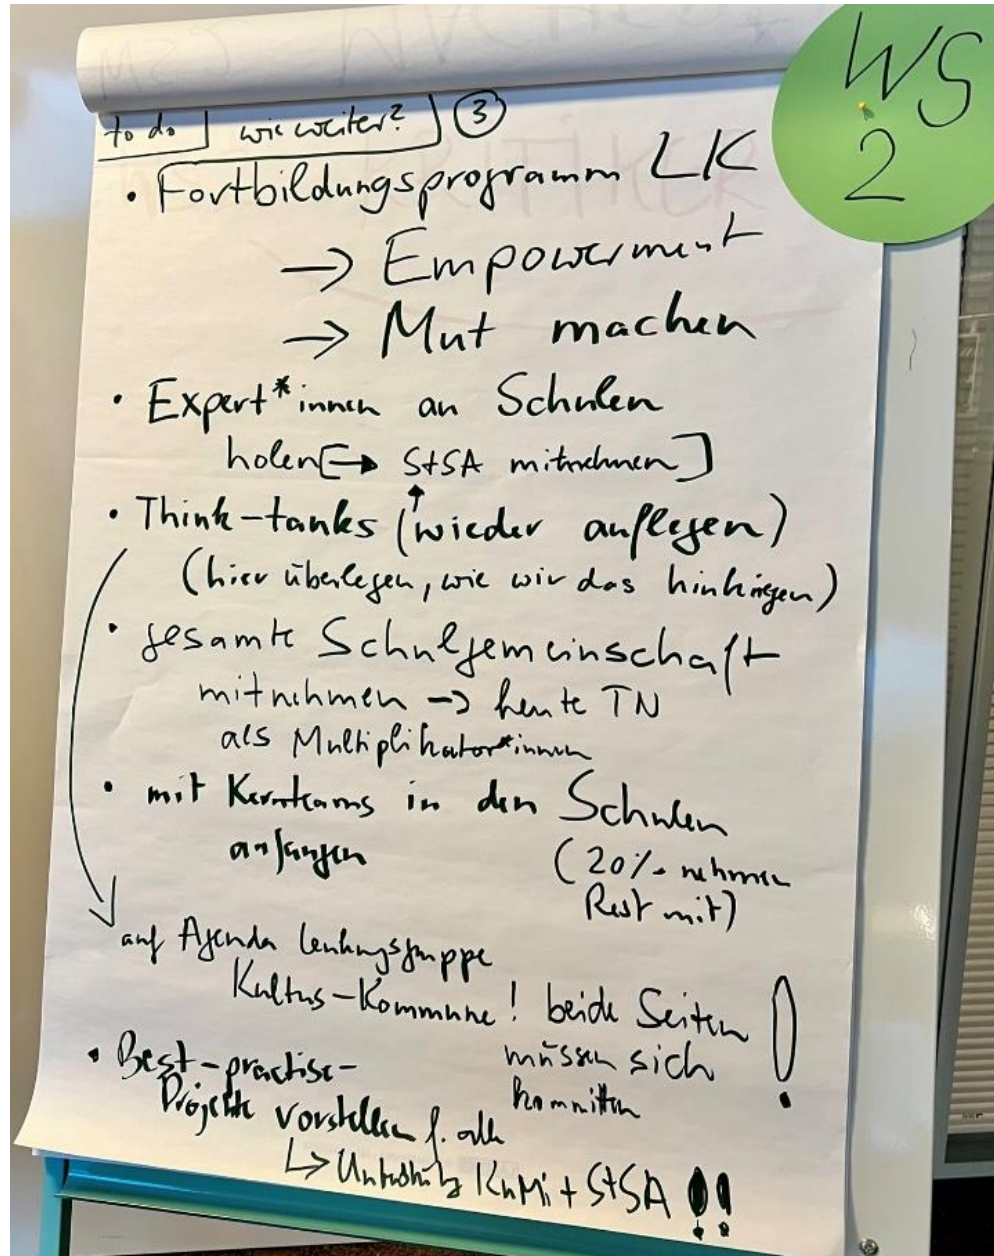 WS
2
to do wie weiter? 3
• Fortbildungsprogramm LK
→ Empowerment
→ Mut machen
• Expert*innen an Schulen
holen [→ StSA mitnehmen]
• Think-tanks (wieder auflegen)
(hier überlegen, wie wir das hinkriegen)
• gesamte Schulgemeinschaft
mitnehmen → heute TN
als Multiplikator*innen
• mit Kernteams in den Schulen
anfangen (20% nehmen
Rest mit)
auf Agenda Lenkungsgruppe
Kultus-Kommune! beide Seiten
müssen sich
kommitten !
• Best-practise-
Projekte vorstellen f. alle
↳ KuMi + StSA !!